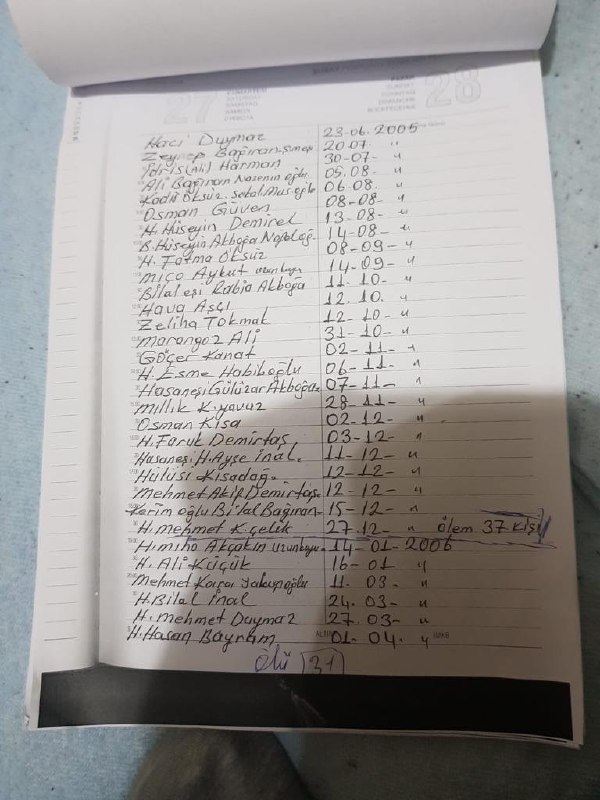 27 CUMARTESİ PAZAR 28
SATURDAY SUNDAY
SAMSTAG SONNTAG
SAMEDI DIMANCHE
Haci Duymaz 23-06-2005
Zeynep Bağıran 20-07 "
İdris (Ali) Harman 30-07- "
Ali Bağıran Nazenin oğlu 05.08- "
Kadri Öksüz 06.08. "
Osman Güven 08-08- "
H. Hüseyin Demirel 13-08- "
B. Hüseyin Akboğa 14-08- "
H. Fatma Öksüz 08-09- "
Miço Aykut uzunkuyu 14-09- "
Bilal eşi Rabia Akboğa 11-10- "
Hava Aşçı 12.10. "
Zeliha Tokmak 12-10- "
Marangoz Ali 31-10- "
Göçer Kanat 02-11- "
H. Esme Habiboğlu 06-11- "
Hasaneşi Gülüzar Akboğa 07-11- "
Millik K.yavuz 28-11- "
Osman Kısa 02-12- "
H. Faruk Demirtaş 03-12- "
Hasaneşi H. Ayşe İnal. 11-12- "
Hülüsi Kısadağ 12-12- "
Mehmet Akif Demirtaş 12-12- "
Kerim oğlu Bilal Bağıran 15-12- "
H. mehmet K.çelik 27.12- " ölem 37 kişi
H. miho Akçakın uzunkuyu 14-01-2006
H. Ali Küçük 16-01 "
Mehmet Karaca Yakupoğlu 11.03- "
H. Bilal İnal 24.03- "
H. mehmet Duymaz 27.03- "
H. Hasan Bayram 01-04. "
ölü 31